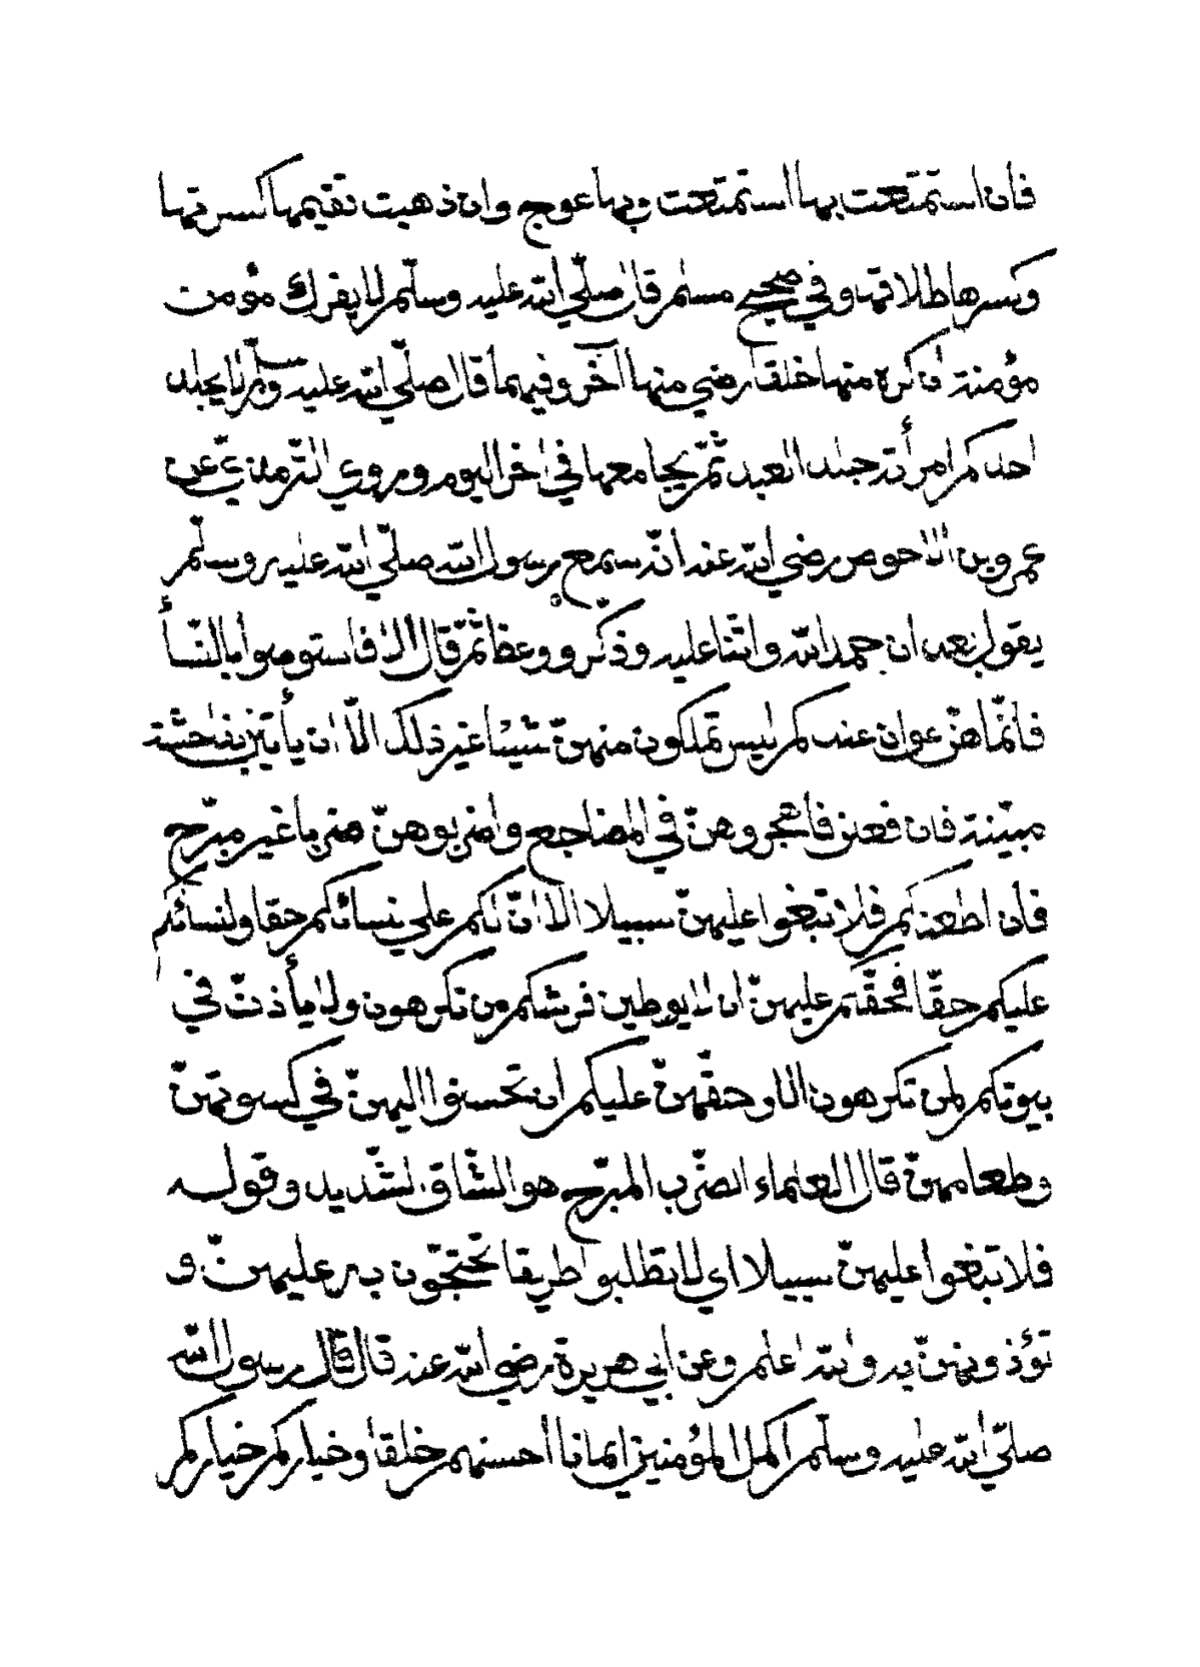 فان استمتعت بها استمتعت وبها عوج وان ذهبت تقيمها كسرتها
وكسرها طلاقها وفي صحيح مسلم قال صلّي الله عليه وسلّم لا يفرك مؤمن
مؤمنة ان كره منها خلقا رضي منها آخر وفيهما قال صلّي الله عليه وسلّم لا يجلد
احدكم امرأته جلد العبد ثمّ يجامعها في اخر اليوم وروي التّرمذيّ عن
عمرو بن الاحوص رضي الله عنه انّه سمع رسول الله صلّي الله عليه وسلّم
يقول بعد ان حمد الله واثنا عليه وذكّر ووعظ ثمّ قال الا فاستوصوا بالنّسأ
فانّما هنّ عوان عندكم ليس تملكون منهنّ شيئا غير ذلك الّا ان يأتين بفاحشة
مبيّنة فان فعلن فأهجروهنّ في المضاجع واضربوهنّ ضربا غير مبرّح
فأن اطعنكم فلا تبغوا عليهنّ سبيلا الا انّ لكم علي نسائكم حقا ولنسائكم
عليكم حقّا فحقّكم عليهنّ ان لا يوطين فرشكم من تكرهون ولا يأذنّ في
بيوتكم لمن تكرهون الا وحقّهنّ عليكم ان تحسنوا اليهنّ في كسوتهنّ
وطعامهنّ قال العلماء الضّرب المبرّح هو الشّاق الشّديد وقوله
فلا تبغوا عليهنّ سبيلا اي لا تطلبوا طريقا تحتجّون به عليهنّ و
تؤذونهنّ به والله اعلم وعن ابي هريرة رضي الله عنه قال قال رسول الله
صلّي الله عليه وسلّم اكمل المؤمنين ايمانا احسنهم خلقا وخياركم خياركم